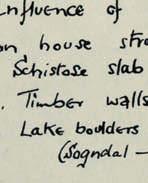 Influence of
on house str
Schistose slab
. Timber walls
Lake boulders
(Sogndal –